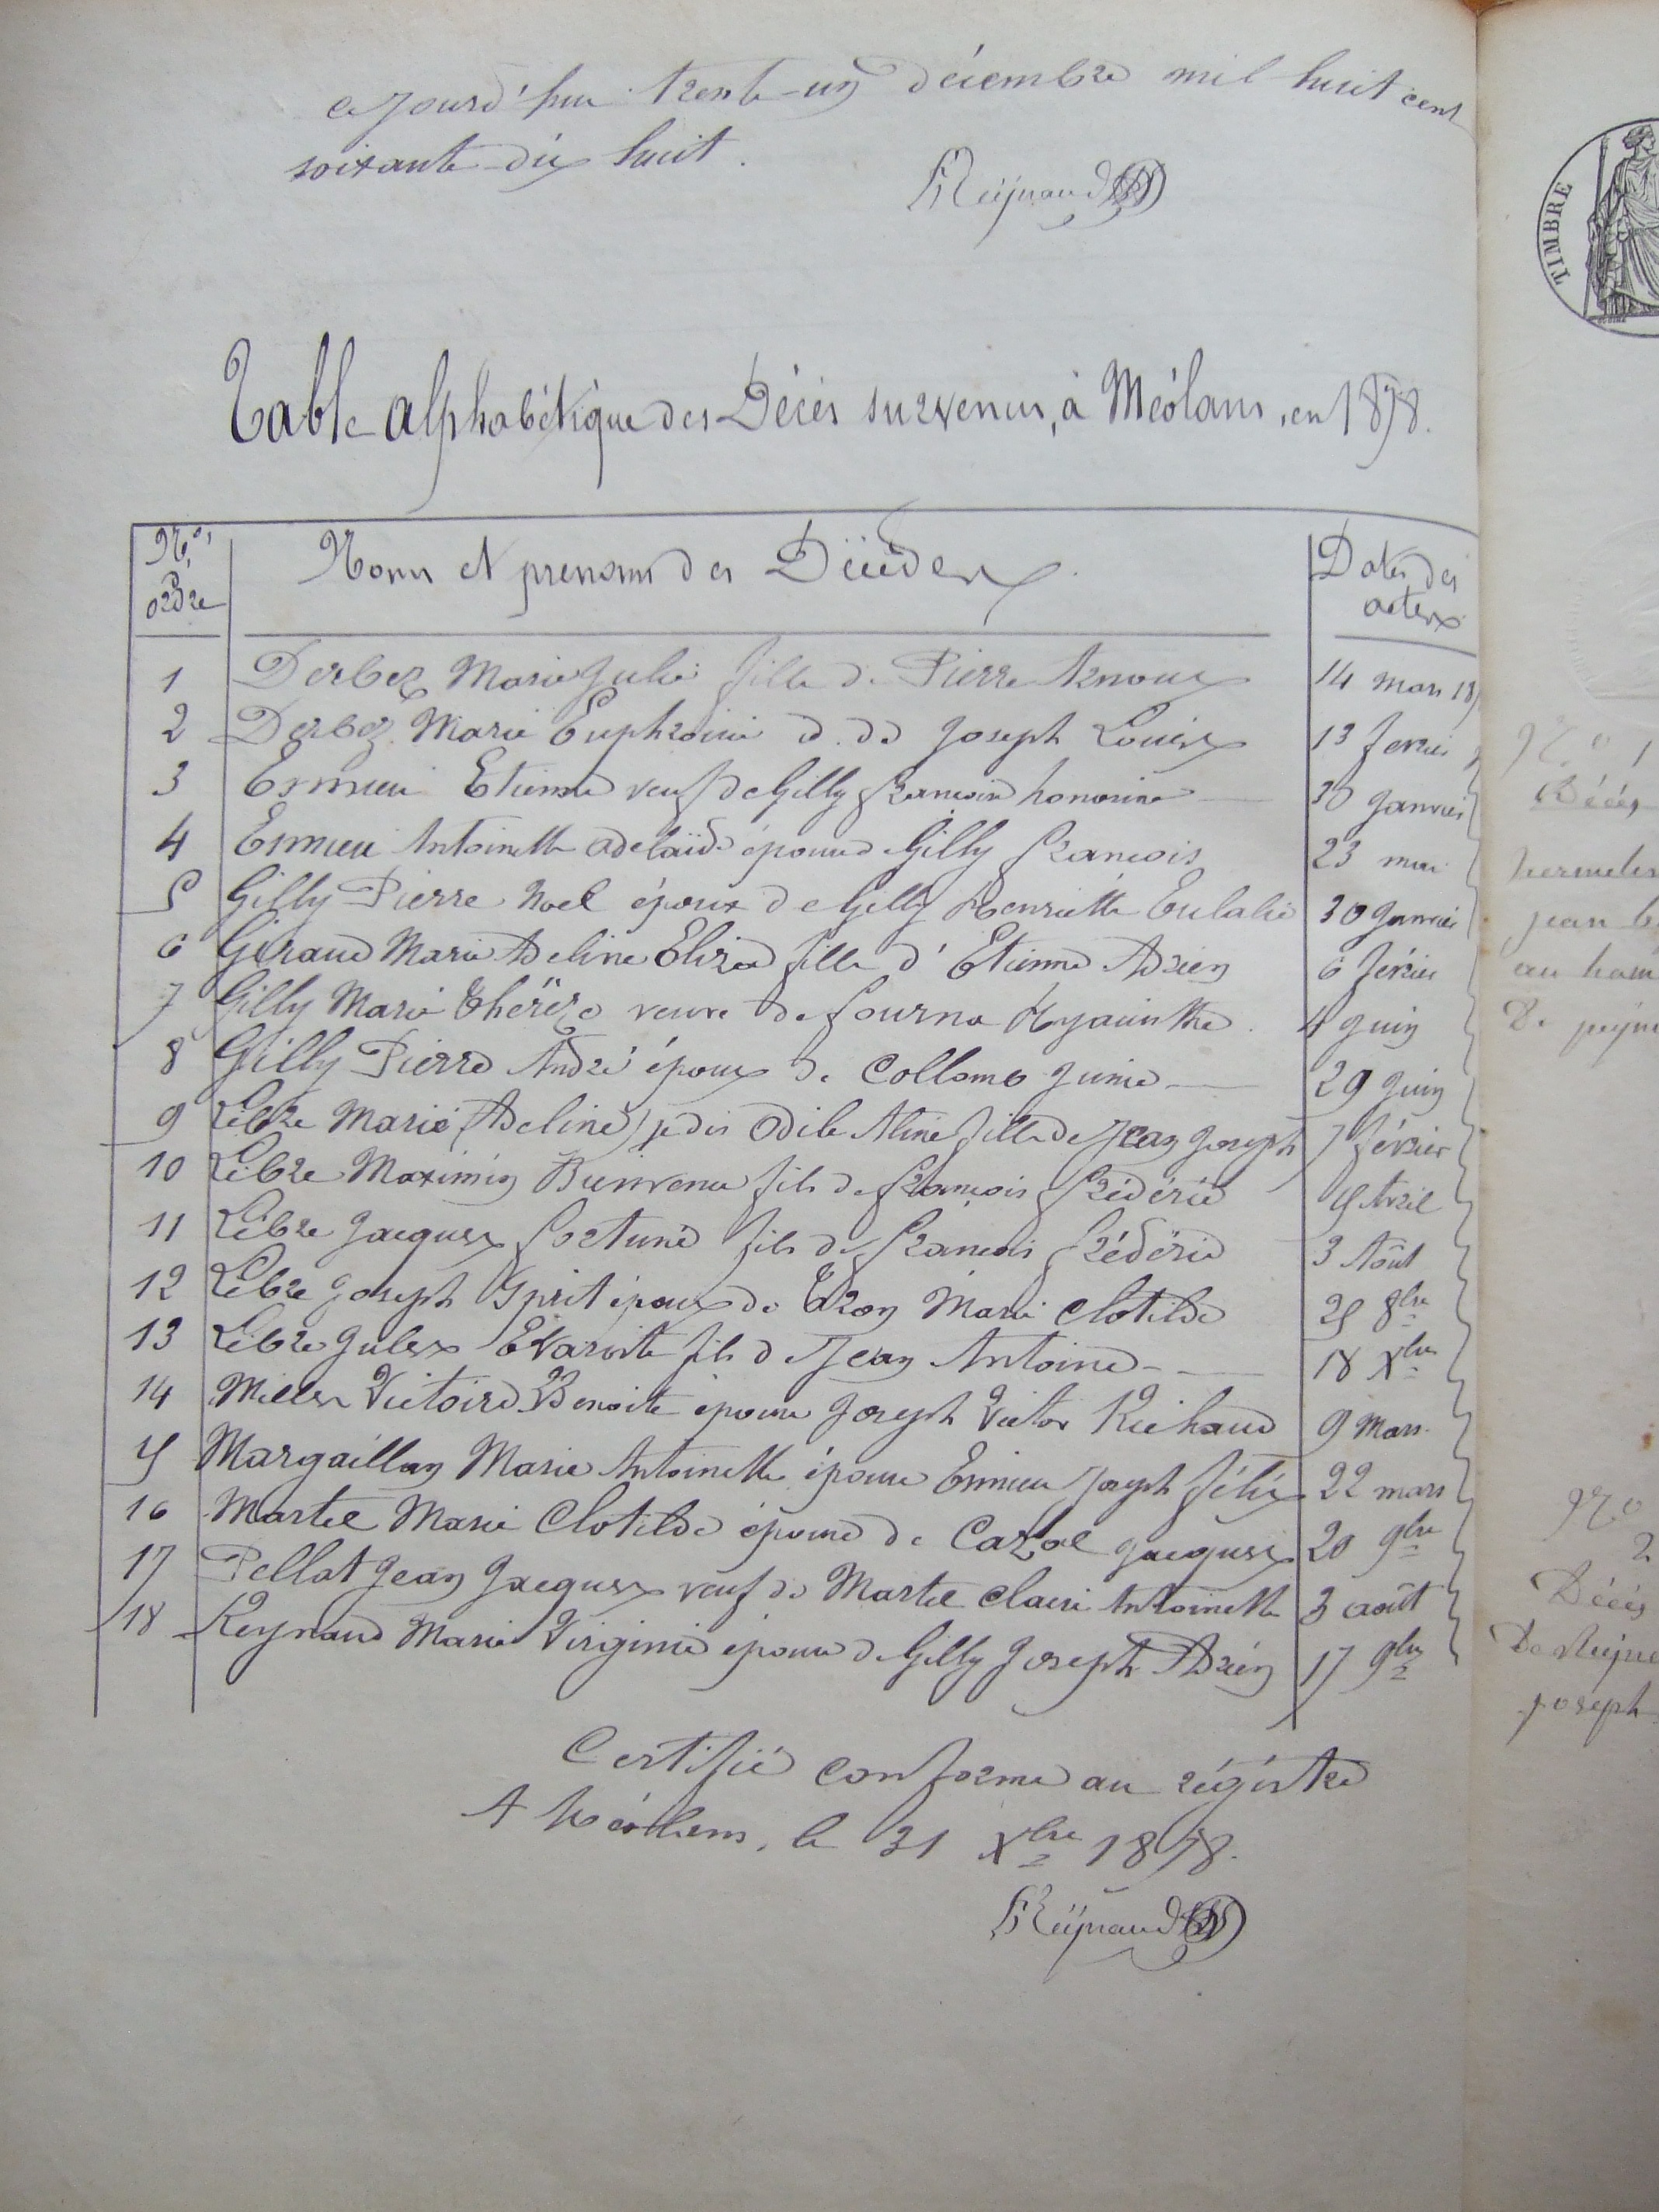 cejourd'hui trente-un décembre mil huit cent
soixante-dix huit.
Reÿnaud
TIMBRE
Table alphabétique des Décès survenus, à Méolans, en 1878.
Nos ordre
Noms et prenoms des Décédés
Dates des actes
1 Derbez Marie Julie fille de Pierre Arnoux 14 mars 187
2 Derbez Marie Euphrosine d. de Joseph Louis 13 fevrier
3 Ermieu Etienne veuf de Gilly françoise honorine 30 Janvier
4 Ermieu Antoinette adelaïde épouse de Gilly françois 23 mai
5 Gilly Pierre Noel époux de Gilly Henriette Eulalie 30 Janvier
6 Giraud Marie Adeline Elisa fille d'Etienne Adrien 6 février
7 Gilly Marie Thérèze veuve de fourna Hyacinthe 4 Juin
8 Gilly Pierre André époux de Collomb Junie 29 Juin
9 Lèbre Marie (Adeline) je dis Odile Aline fille de Jean Joseph 7 février
10 Lèbre Maximin Bienvenu fils de françois frédéric 15 Avril
11 Lèbre Jacques fortuné fils de françois frédéric 3 Août
12 Lèbre Joseph Sprit époux de Tron Marie Clotilde 25 8bre
13 Lèbre Jules Evariste fils de Jean Antoine 18 Xbre
14 Victoire Benoite épouse Joseph Victor Richaud 9 Mars
15 Margaillan Marie Antoinette épouse Ermieu Joseph félix 22 mars
16 Martel Marie Clotilde épouse de Cazal Jacques 20 9bre
17 Pellat Jean Jacques veuf de Martel Claire Antoinette 3 août
18 Reynaud Marie Virginie épouse de Gilly Joseph Adrien 17 9bre
Certifié conforme au régistre
A Méolans, le 31 Xbre 1878.
Reÿnaud
No 1
Décès
jean
au ham
De
No 2
Décès
De Reÿn
joseph